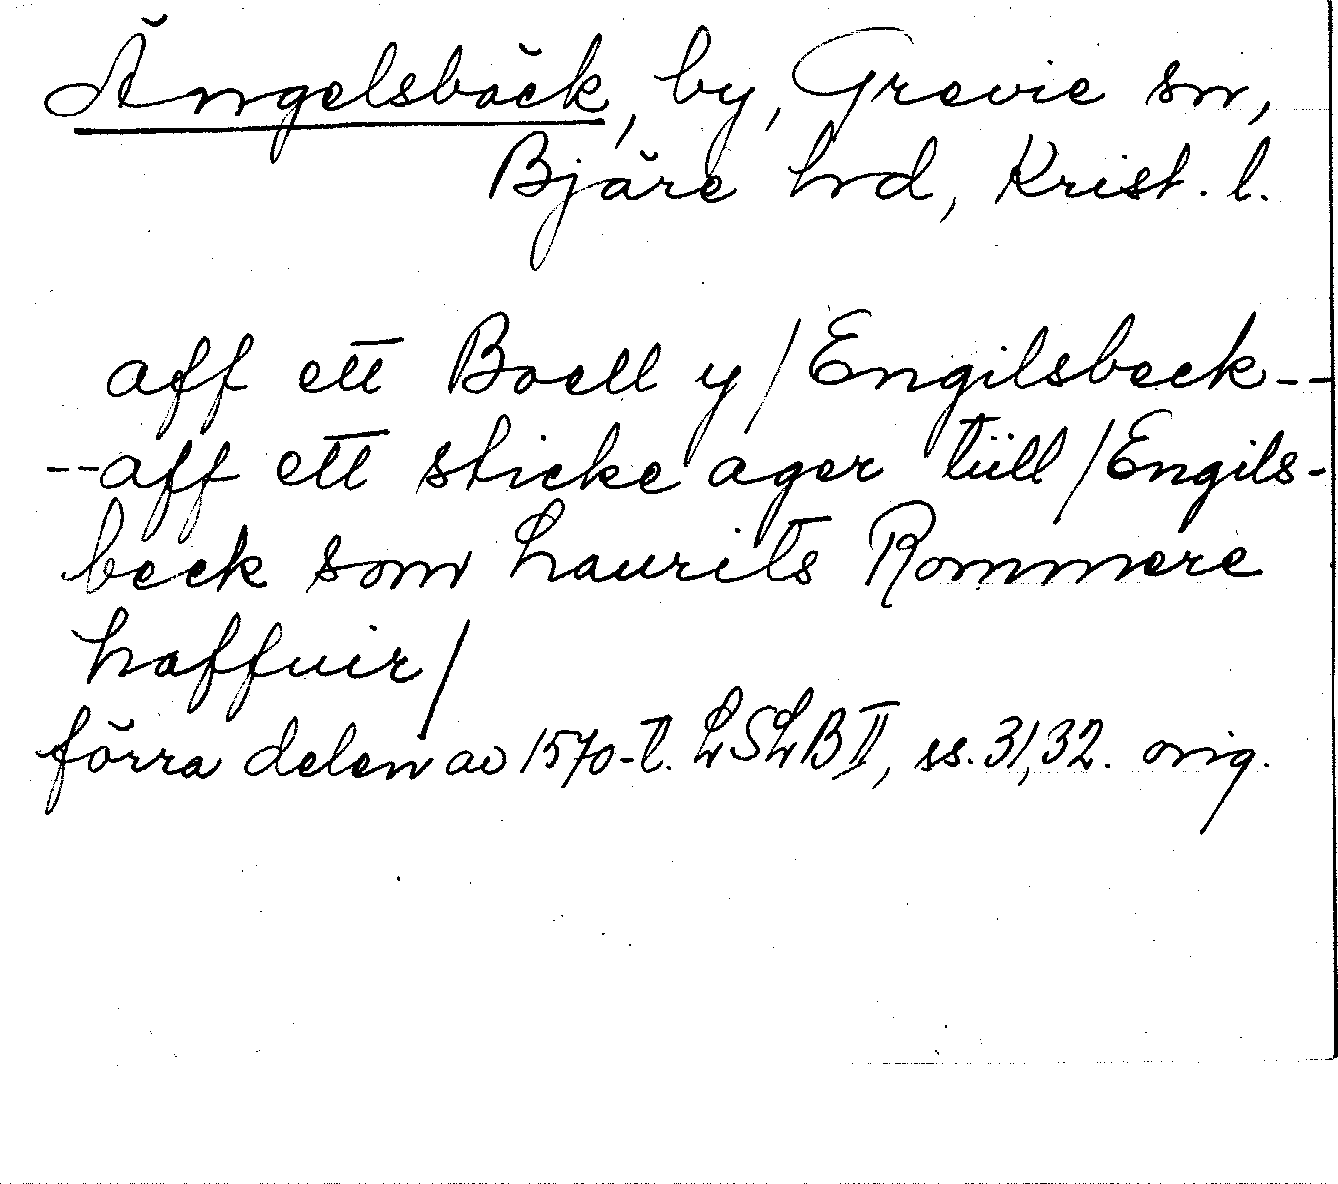 Ängelsbäck, by, Grevie sn,
Bjäre hrd, Krist. l.
aff ett Boell y/Engilsbeck--
--aff ett sticke ager tüll/Engils-
beck som Laurits Rommere
haffuir/
förra delen av 1570-t. LSLB II, ss. 31, 32. orig.